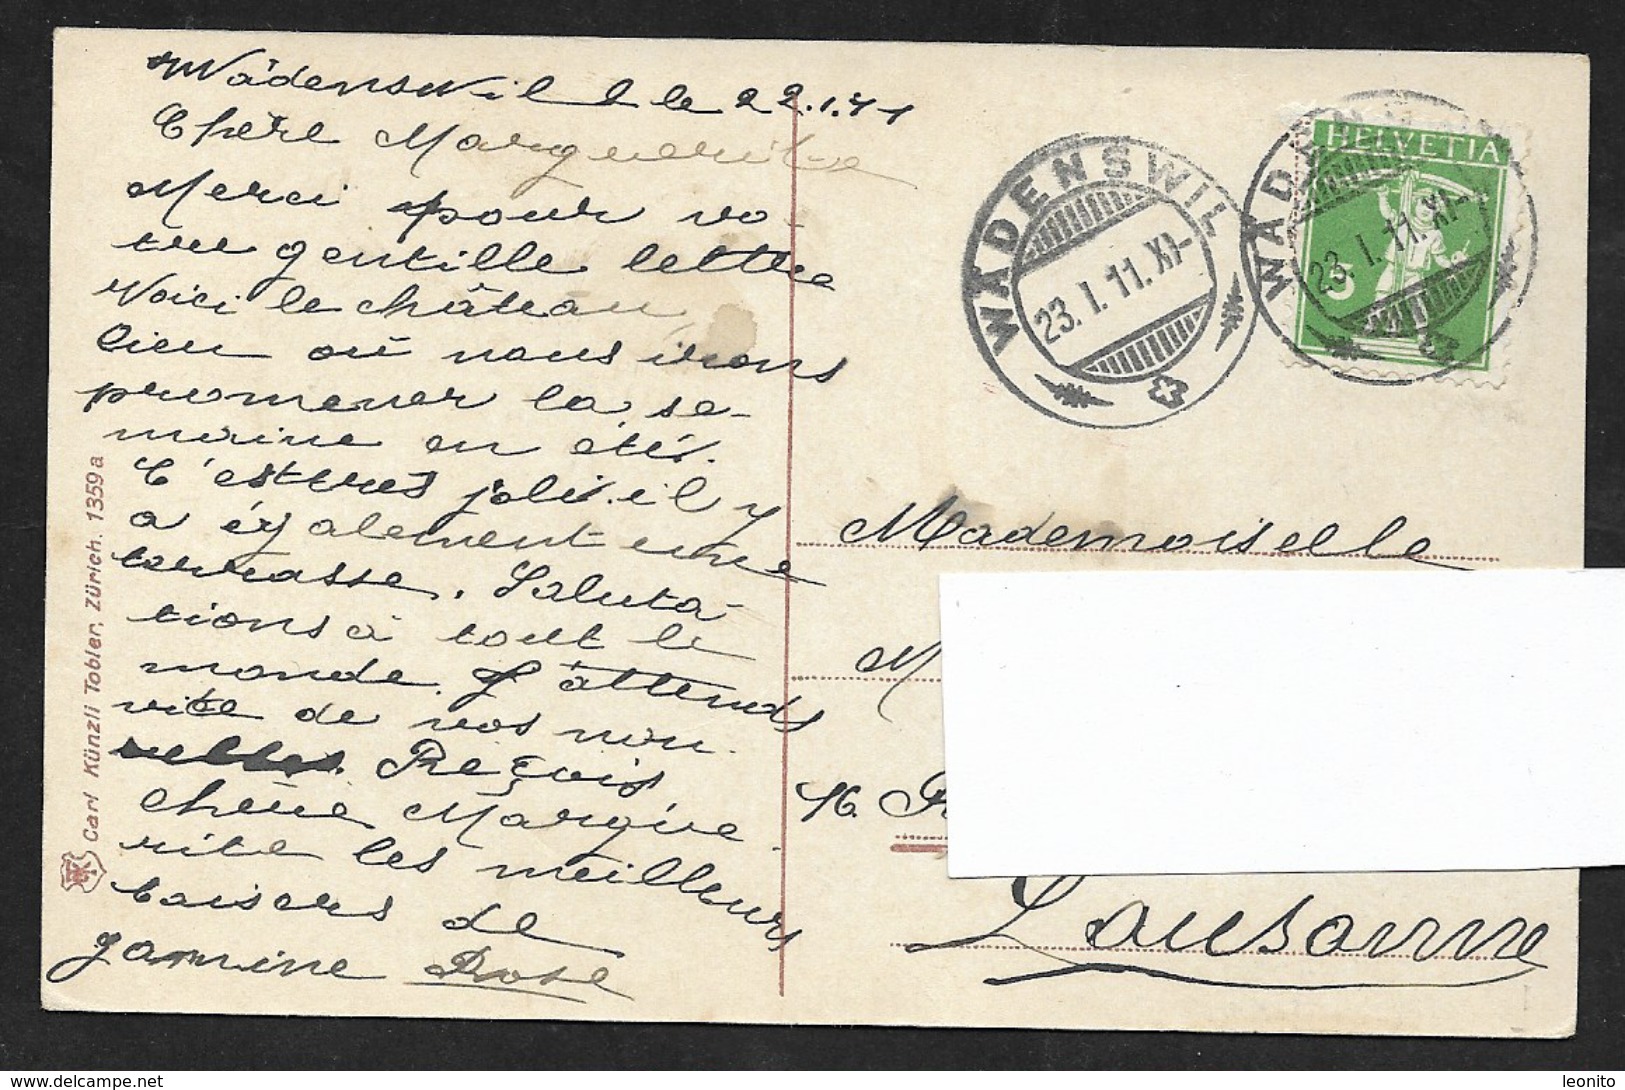 Wädenswil le 22.1.11
Chère Marguerite
Merci pour vo-
tre gentille lettre
Voici le château,
lieu où nous irons
promener la se-
maine en été.
C'est très joli. il y
a également une
terrasse. Saluta-
tions à tout le
monde. J'attends
vite de vos nou-
velles. Reçois
chère Margue-
rite les meilleurs
baisers de
Rose
Carl Künzli Tobler, Zürich. 1359a
WÄDENSWIL
23. I. 11. XI-
HELVETIA
5
WÄDENSWIL
23. I. 11. XI-
Mademoiselle
M
16.
Lausanne
leonito